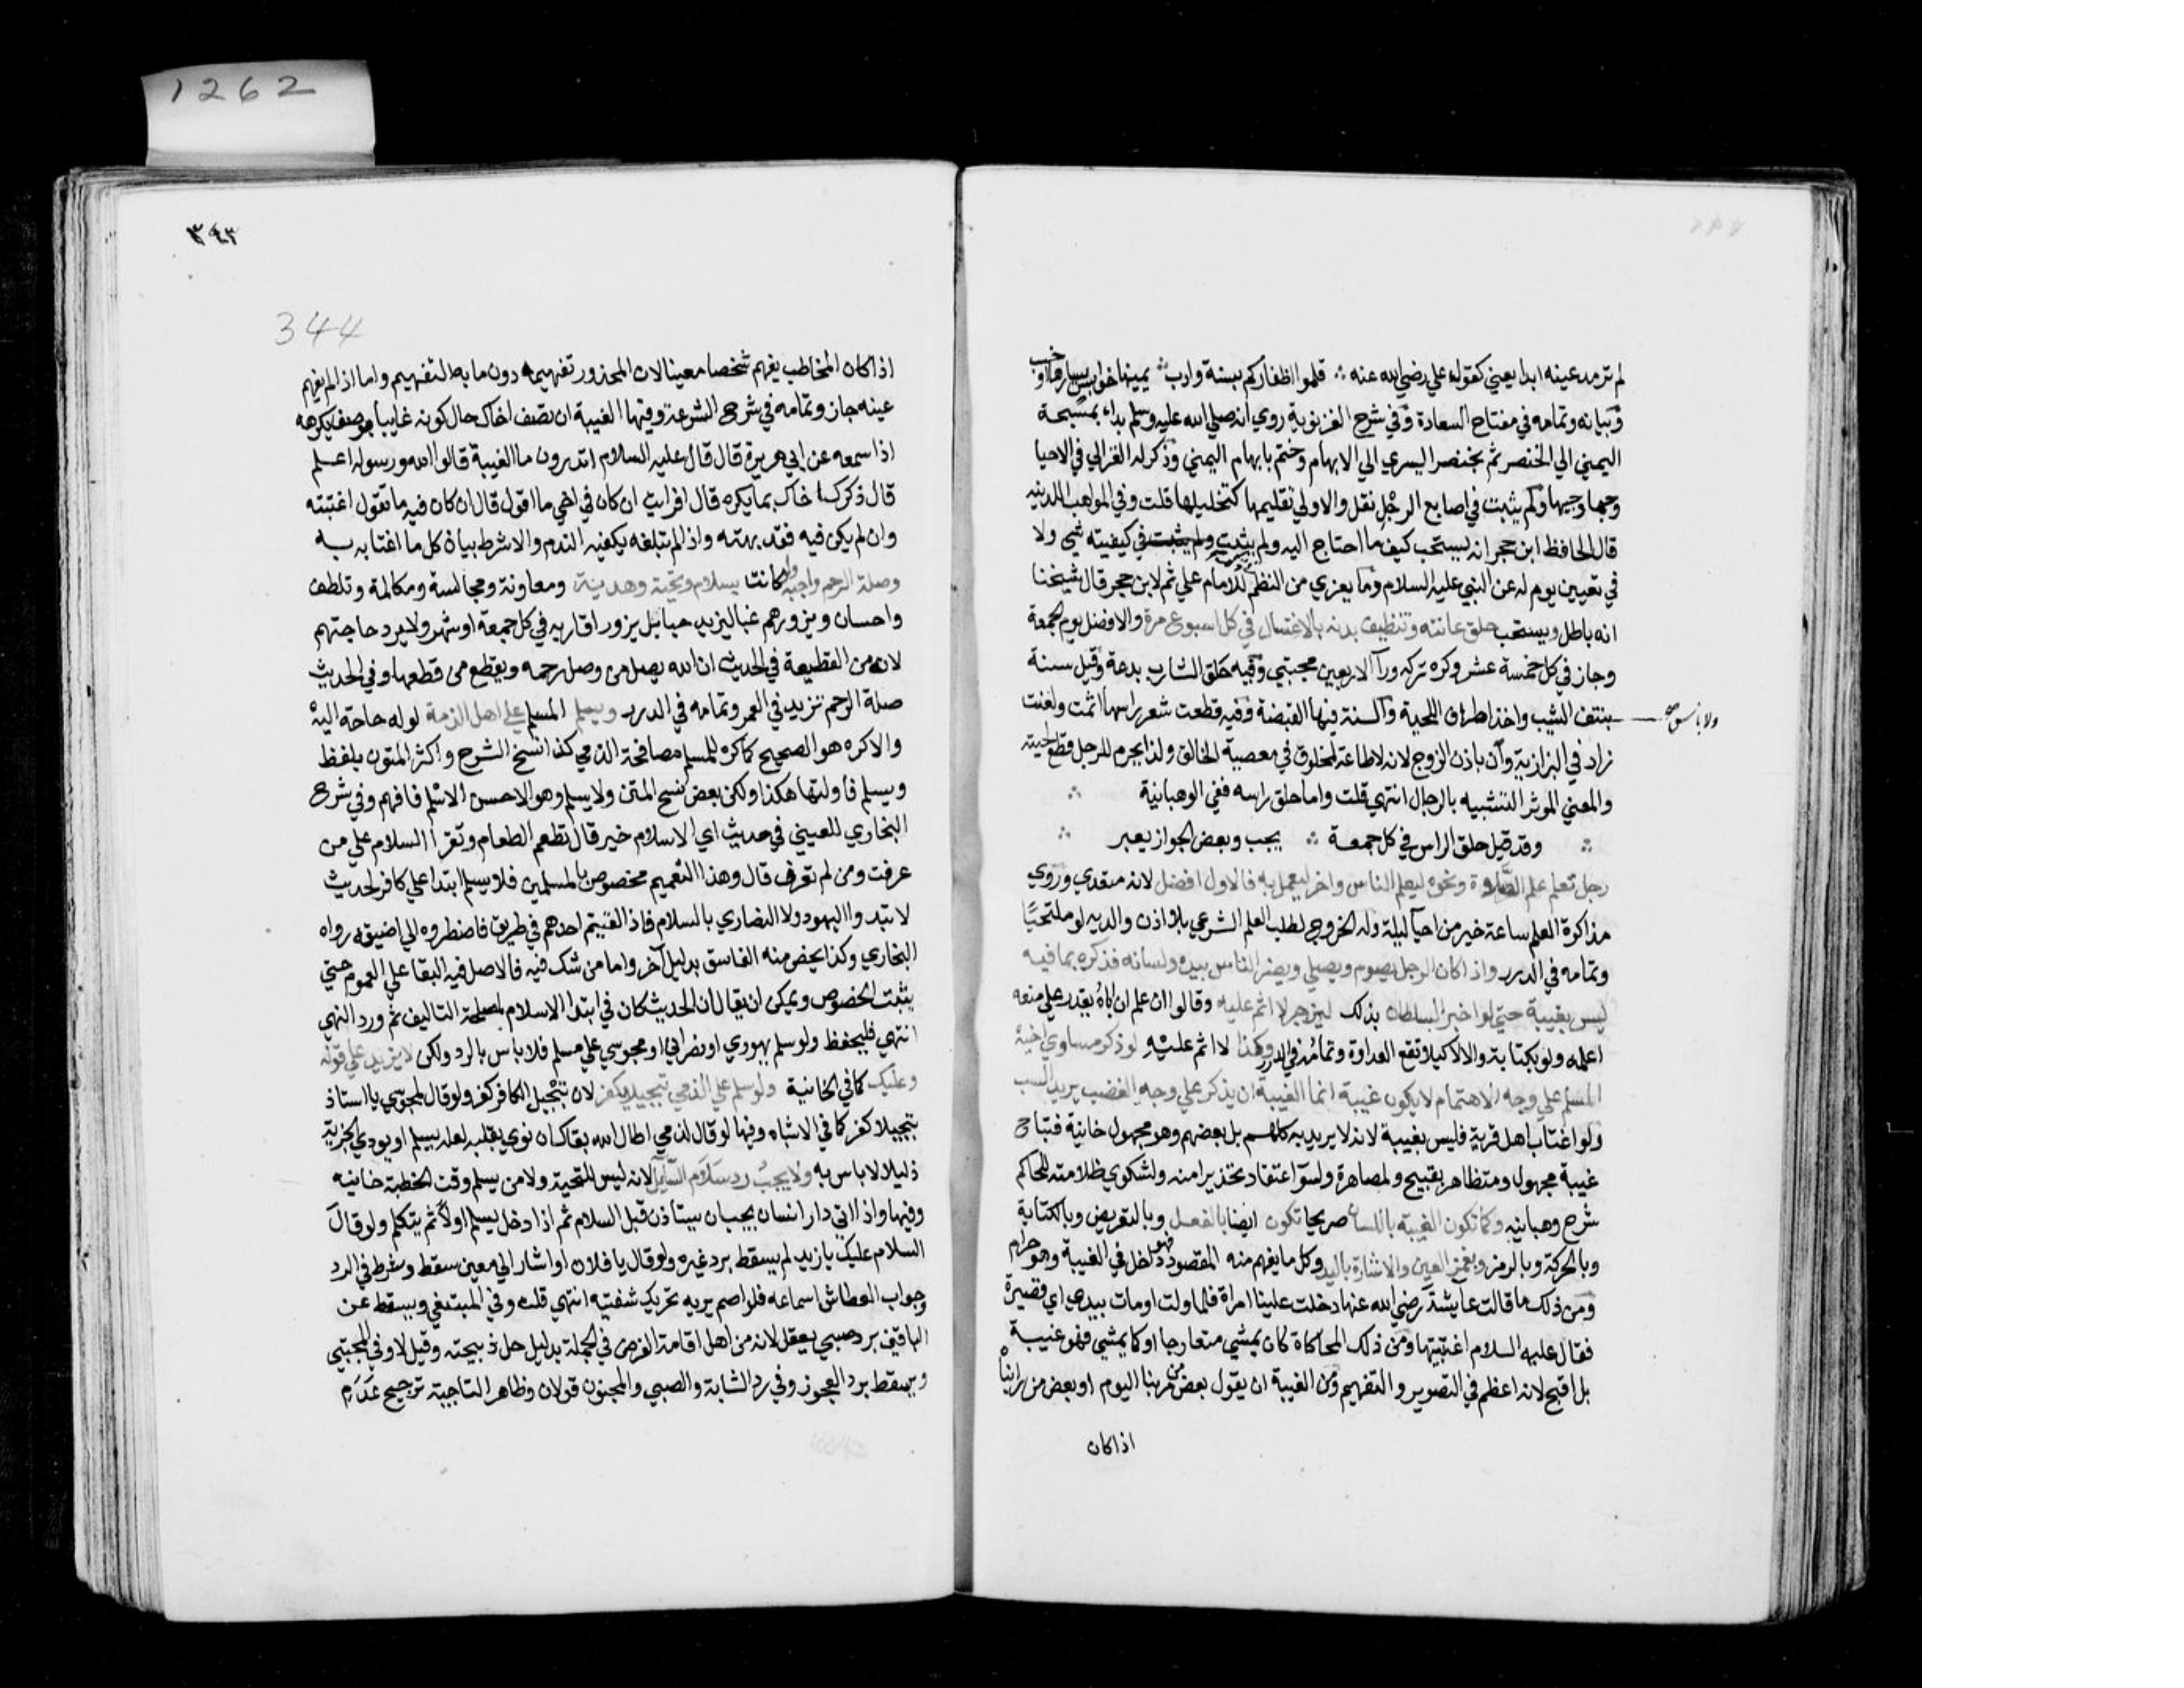 1262
لم ترمد عينه ابدا يعني كقوله علي رضي الله عنه ؞ قلموا اظفاركم بسنة وادب ؞ يمينها خوابس يسارها اوخسب
وبيانه وتمامه في مفتاح السعادة وفي شرح الغزنوية روي انه صلي الله عليه وسلم بداء بمسبحة
اليمني الي الخنصر ثم بخنصر اليسري الي الابهام وختم بابهام اليمني وذكر له الغزالي في الاحيا
وجها وجيها ولم يثبت في اصابع الرجل نقل والاولي تقليمها كتخليلها قلت وفي المواهب اللدنيه
قال الحافظ ابن حجر انه يستحب كيف ما احتاج اليه ولم يثبت ولم يثبت في كيفيته شي ولا
في تعيين يوم له عن النبي عليه السلام وما يعزي من النظم للامام علي ثم لابن حجر قال شيخنا
انه باطل ويستحب حلق عانته وتنظيف بدنه بالاغتسال في كل اسبوع مرة والافضل يوم الجمعة
وجاز في كل خمسة عشر وكره تركه ورآ الاربعين مجتبي وفيه حلق الشارب بدعة وقيل سنة
ولا باس صح
بنتف الشيب واخذ اطراف اللحية والسنة فيها القبضة وفيه قطعت شعر راسها اثمت ولعنت
زاد في البزازية وان باذن الزوج لانه لا طاعة لمخلوق في معصية الخالق ولذا يحرم للرجل قطع لحيته
والمعني الموثر التشبيه بالرجال انتهي قلت واما حلق راسه ففي الوهبانية ؞
؞ وقد قيل حلق الراس في كل جمعة ؞ يحب وبعض الجواز يعبر ؞
رجل تعلم علم الصلاة ونحوه ليعلم الناس واخر ليعمل به فالاول افضل لانه متعدي وروي
مذاكرة العلم ساعة خير من احيآ ليلة وله الخروج لطلب العلم الشرعي بلا اذن والديه لو ملتحيًا
وتمامه في الدرر واذا كان الرجل يصوم ويصلي ويضر الناس بيده ولسانه فذكره بما فيه
ليس بغيبة حتي لو اخبر السلطان بذلك ليزجر لا اثم عليه وقالوا ان علم ان اباه يقدر علي منعه
اعلمه ولو بكتابة والا لا كيلا تقع العداوة وتمامه في الدرر وكذا لا اثم عليه لو ذكر مساوي اخيه
المسلم علي وجه الاهتمام لا يكون غيبة انما الغيبة ان يذكر علي وجه الغضب يريد السب
ولو اغتاب اهل قرية فليس بغيبة لانه لا يريد به كلهم بل بعضهم وهو مجهول خانية فتباح
غيبة مجهول ومتظاهر بقبيح ولمصاهرة ولسوٓ اعتقاد تحذيرا منه ولشكوي ظلامته للحاكم
شرح وهبانيه وكما تكون الغيبة باللسان صريحا تكون ايضا بالفعل وبالتعريض وبالكتابة
وبالحركة وبالرمز وبغمز العين والاشارة باليد وكل ما يفهم منه المقصود فهو داخل في الغيبة وهو حرام
ومن ذلك ما قالت عايشة رضي الله عنها دخلت علينا امراة فلما ولت اومات بيدي اي قصيرة
فقال عليه السلام اغتبتيها ومن ذلك المحاكاة كان يمشي متعارجا او كما يمشي فهو غيبة
بل اقبح لانه اعظم في التصوير والتفهيم ومن الغيبة ان يقول بعض من مر بنا اليوم او بعض من رايناه
اذا كان
٣٤٣
344
اذا كان المخاطب يفهم شخصا معينا لان المحذور تفهيمه دون ما به التفهيم واما اذا لم يفهم
عينه جاز وتمامه في شرح الشرعة وفيها الغيبة ان تصف اخاك حال كونه غايبا بوصف يكرهه
اذا سمعه عن ابي هريرة قال قال عليه السلام اتدرون ما الغيبة قالوا الله ورسوله اعلم
قال ذكرك اخاك بما يكره قال افرايت ان كان في اخي ما اقول قال ان كان فيه ما تقول اغتبته
وان لم يكن فيه فقد بهته واذا لم تبلغه يكفيه الندم والا شرط بيان كل ما اغتابه به
وصلة الرحم واجبة ولو كانت بسلام وتحية وهدية ومعاونة ومجالسة ومكالمة وتلطف
واحسان ويزورهم غبا ليزيد حبا بل يزور اقاربه في كل جمعة او شهر ولا يرد حاجتهم
لانه من القطيعة في الحديث ان الله يصل من وصل رحمه ويقطع من قطعها وفي الحديث
صلة الرحم تزيد في العمر وتمامه في الدرر ويسلم المسلم علي اهل الذمة لو له حاجة اليه
والا كره هو الصحيح كما كره للمسلم مصافحة الذمي كذا نسخ الشرح واكثر المتون بلفظ
ويسلم فاولتها هكذا ولكن بعض نسخ المتن ولا يسلم وهو الاحسن الاسلم فافهم وفي شرح
البخاري للعيني في حديث اي الاسلام خير قال تطعم الطعام وتقرا السلام علي من
عرفت ومن لم تعرف قال وهذا التعميم مخصوص بالمسلمين فلا يسلم ابتدا علي كافر لحديث
لا تبدوا اليهود ولا النصاري بالسلام فاذا لقيتم احدهم في طريق فاضطروه الي اضيقه رواه
البخاري وكذا يخص منه الفاسق بدليل آخر واما من شك فيه فالاصل فيه البقا علي العموم حتي
يثبت الخصوص ويمكن ان يقال ان الحديث كان في ابتدا الاسلام لمصلحة التاليف ثم ورد النهي
انتهي فليحفظ ولو سلم يهودي او نصراني او مجوسي علي مسلم فلا باس بالرد ولكن لا يزيد علي قوله
وعليك كما في الخانية ولو سلم علي الذمي تبجيلا يكفر لان تبجيل الكافر كفر ولو قال لمجوسي يا استاذ
تبجيلا كفر كما في الاشباه وفيها لو قال لذمي اطال الله بقاك ان نوي بقلبه لعله يسلم او يودي الجزية
ذليلا لا باس به ولا يجب رد سلام السائل لانه ليس للتحية ولا من يسلم وقت الخطبة خانيه
وفيها واذا اتي دار انسان يجب ان يستاذن قبل السلام ثم اذا دخل يسلم اولا ثم يتكلم ولو قال
السلام عليك يا زيد لم يسقط برد غيره ولو قال يا فلان او اشار الي معين سقط وشرط في الرد
وجواب العطاش اسماعه فلو اصم يريه تحريك شفتيه انتهي قلت وفي المبتغي ويسقط عن
الباقين برد صبي يعقل لانه من اهل اقامة الفرض في الجملة بدليل حل ذبيحته وقيل لا وفي المجتبي
ويسقط برد العجوز وفي رد الشابة والصبي والمجنون قولان وظاهر التاجية ترجيح عدم